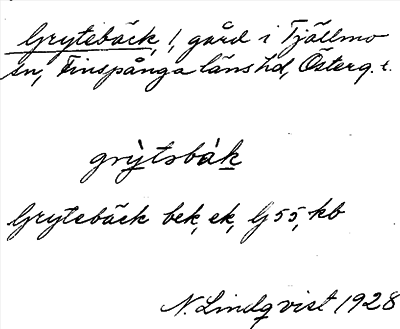 Grytebäck, 1, gård i Tjällmo
sn, Finspånga läns hd, Österg. l.
grỳtsbàk
Grytebäck bek, ek, G55, kb
N. Lindqvist 1928